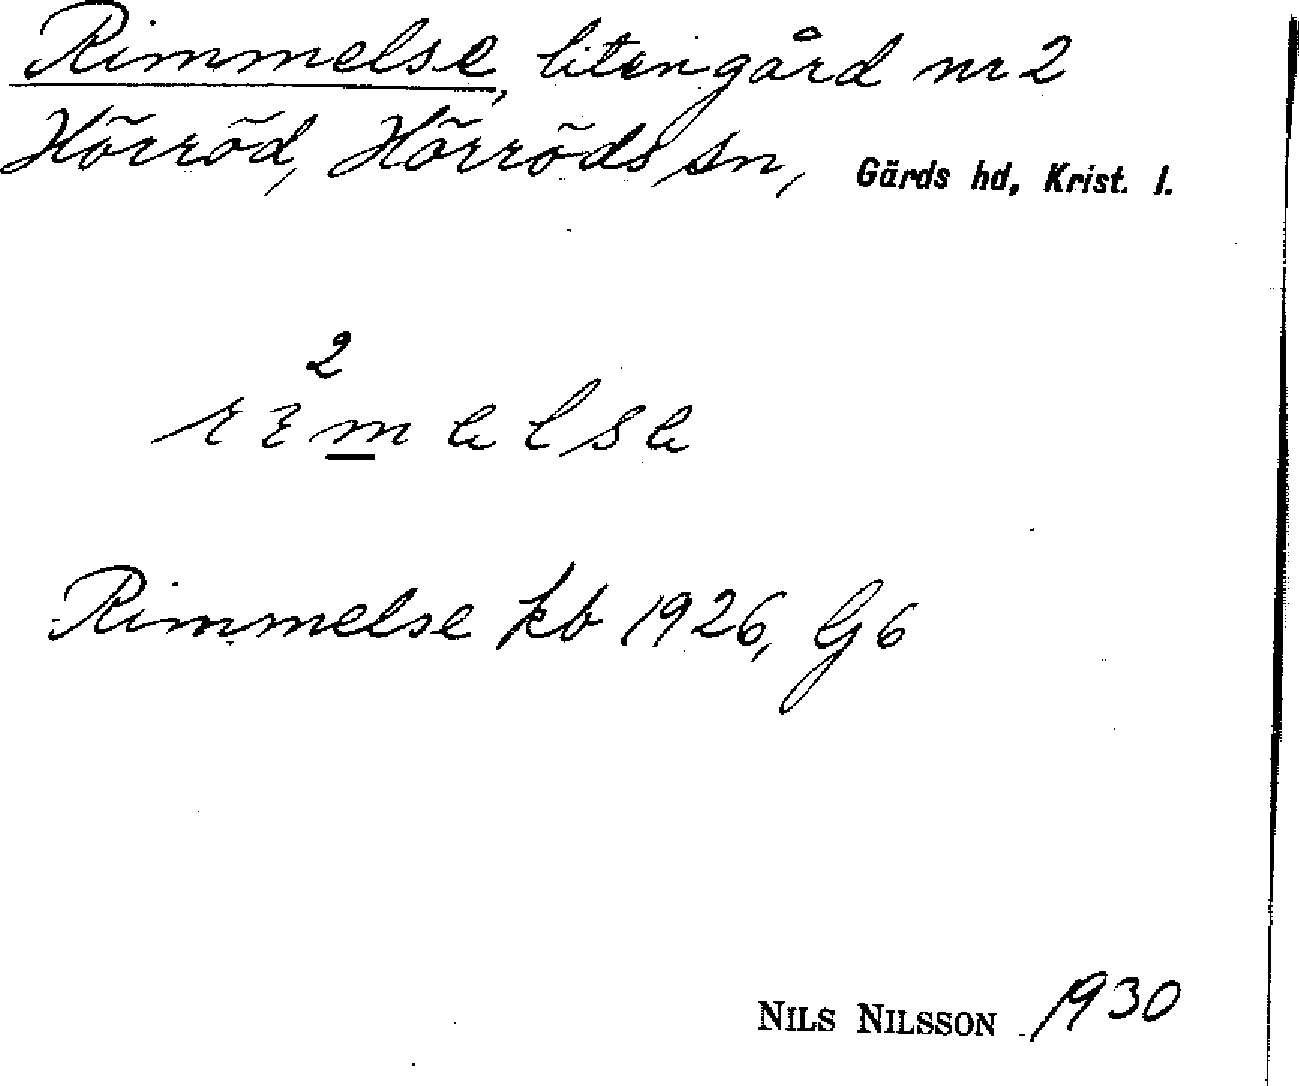 Rimmelse, liten gård nr 2
Hörröd, Hörröds sn, Gärds hd, Krist. l.
2
Rimmelse kb 1926, G 6
NILS NILSSON 1930